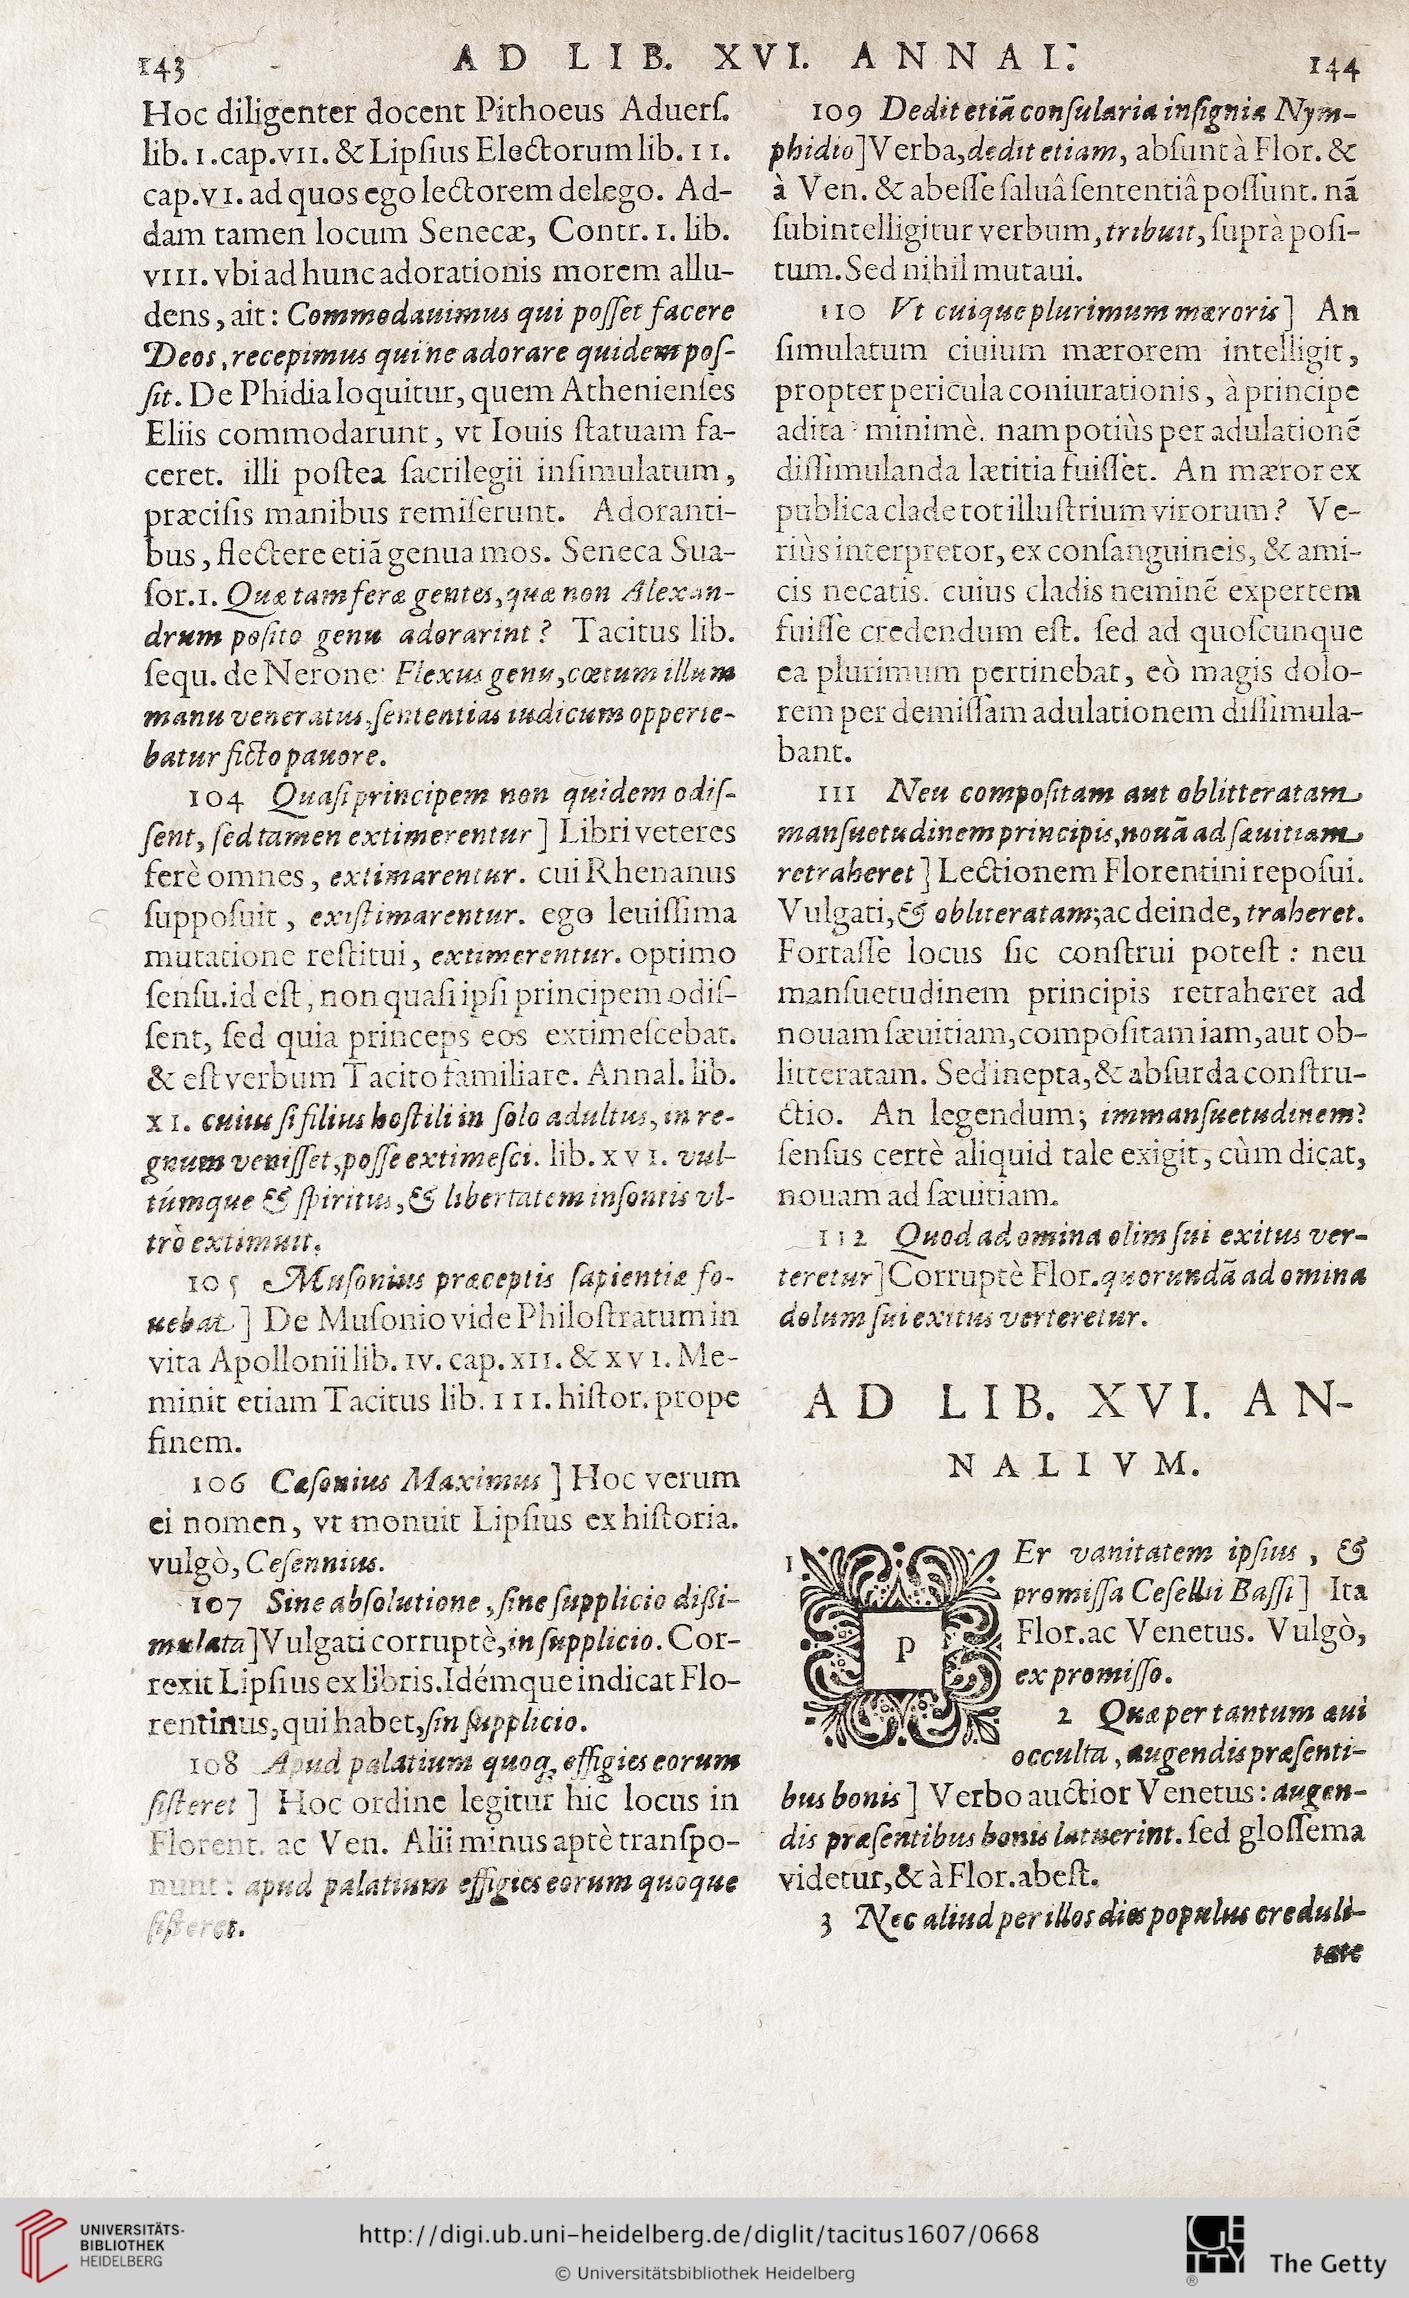 143
AD LIB. XVI. ANNAL.
144
Hoc diligenter docent Pithoeus Aduerſ.
lib. I. cap. VII. & Lipſius Electorum lib. II.
cap. VI. ad quos ego lectorem delego. Ad-
dam tamen locum Senecæ, Contr. I. lib.
VIII. vbi ad hunc adorationis morem allu-
dens, ait: Commodauimus qui poſſet facere
Deos, recepimus qui ne adorare quidem poſ-
ſit. De Phidia loquitur, quem Athenienſes
Eliis commodarunt, vt Iouis ſtatuam fa-
ceret. illi poſtea ſacrilegii inſimulatum,
præciſis manibus remiſerunt. Adoranti-
bus, flectere etiã genua mos. Seneca Sua-
ſor. I. Quæ tam feræ gentes, quæ non Alexan-
drum poſito genu adorarint? Tacitus lib.
ſequ. de Nerone: Flexus genu, cœtum illum
manu veneratus, ſententias iudicum opperie-
batur ficto pauore.
104 Quaſi principem non quidem odiſ-
ſent, ſed tamen extimerentur] Libri veteres
ferè omnes, extimarentur. cui Rhenanus
ſuppoſuit, exiſtimarentur. ego leuiſſima
mutatione reſtitui, extimerentur. optimo
ſenſu. id eſt, non quaſi ipſi principem odiſ-
ſent, ſed quia princeps eos extimeſcebat.
& eſt verbum Tacito familiare. Annal. lib.
XI. cuius ſi filius hoſtili in ſolo adultus, in re-
gnum veniſſet, poſſe extimeſci. lib. XVI. vul-
túmque & ſpiritus, & libertatem inſontis vl-
trò extimuit.
105 Muſonius præceptis ſapientiæ fo-
uebat.] De Muſonio vide Philoſtratum in
vita Apollonii lib. IV. cap. XII. & XVI. Me-
minit etiam Tacitus lib. III. hiſtor. prope
finem.
106 Cæſonius Maximus] Hoc verum
ei nomen, vt monuit Lipſius ex hiſtoria.
vulgò, Ceſennius.
107 Sine abſolutione, ſine ſupplicio dißi-
mulata] Vulgati corruptè, in ſupplicio. Cor-
rexit Lipſius ex libris. Idémque indicat Flo-
rentinus, qui habet, ſin ſupplicio.
108 Apud palatium quoq. effigies eorum
ſiſteret] Hoc ordine legitur hic locus in
Florent. ac Ven. Alii minus aptè tranſpo-
nunt: apud palatium effigies eorum quoque
ſiſteret.
109 Dedit etiã conſularia inſignia Nym-
phidio] Verba, dedit etiam, abſunt à Flor. &
à Ven. & abeſſe ſaluâ ſententiâ poſſunt. nã
ſubintelligitur verbum, tribuit, ſuprà poſi-
tum. Sed nihil mutaui.
110 Vt cuique plurimum mæroris] An
ſimulatum ciuium mærorem intelligit,
propter pericula coniurationis, à principe
adita: minimè. nam potiùs per adulationẽ
diſſimulanda lætitia fuiſſet. An mæror ex
publica clade tot illuſtrium virorum? Ve-
riùs interpretor, ex conſanguineis, & ami-
cis necatis. cuius cladis neminẽ expertem
fuiſſe credendum eſt. ſed ad quoſcunque
ea plurimum pertinebat, eò magis dolo-
rem per demiſſam adulationem diſſimula-
bant.
111 Neu compoſitam aut oblitteratam
manſuetudinem principis, nouã ad ſæuitiam
retraheret] Lectionem Florentini repoſui.
Vulgati, & obliteratam; ac deinde, traheret.
Fortaſſe locus ſic conſtrui poteſt: neu
manſuetudinem principis retraheret ad
nouam ſæuitiam, compoſitam iam, aut ob-
litteratam. Sed inepta, & abſurda conſtru-
ctio. An legendum; immanſuetudinem?
ſenſus certè aliquid tale exigit, cùm dicat,
nouam ad ſæuitiam.
112 Quod ad omina olim ſui exitus ver-
teretur] Corruptè Flor. quorundã ad omina
dolum ſui exitus verteretur.
AD LIB. XVI. AN-
NALIVM.
1 PEr vanitatem ipſius, &
promiſſa Ceſellii Baſſi] Ita
Flor. ac Venetus. Vulgò,
ex promiſſo.
2 Quæ per tantum æui
occulta, augendis præſenti-
bus bonis] Verbo auctior Venetus: augen-
dis præſentibus bonis latuerint. ſed gloſſema
videtur, & à Flor. abeſt.
3 Nec aliud per illos dies populus creduli-
tate
UNIVERSITÄTS-
BIBLIOTHEK
HEIDELBERG
http://digi.ub.uni-heidelberg.de/diglit/tacitus1607/0668
© Universitätsbibliothek Heidelberg
GETTY
The Getty